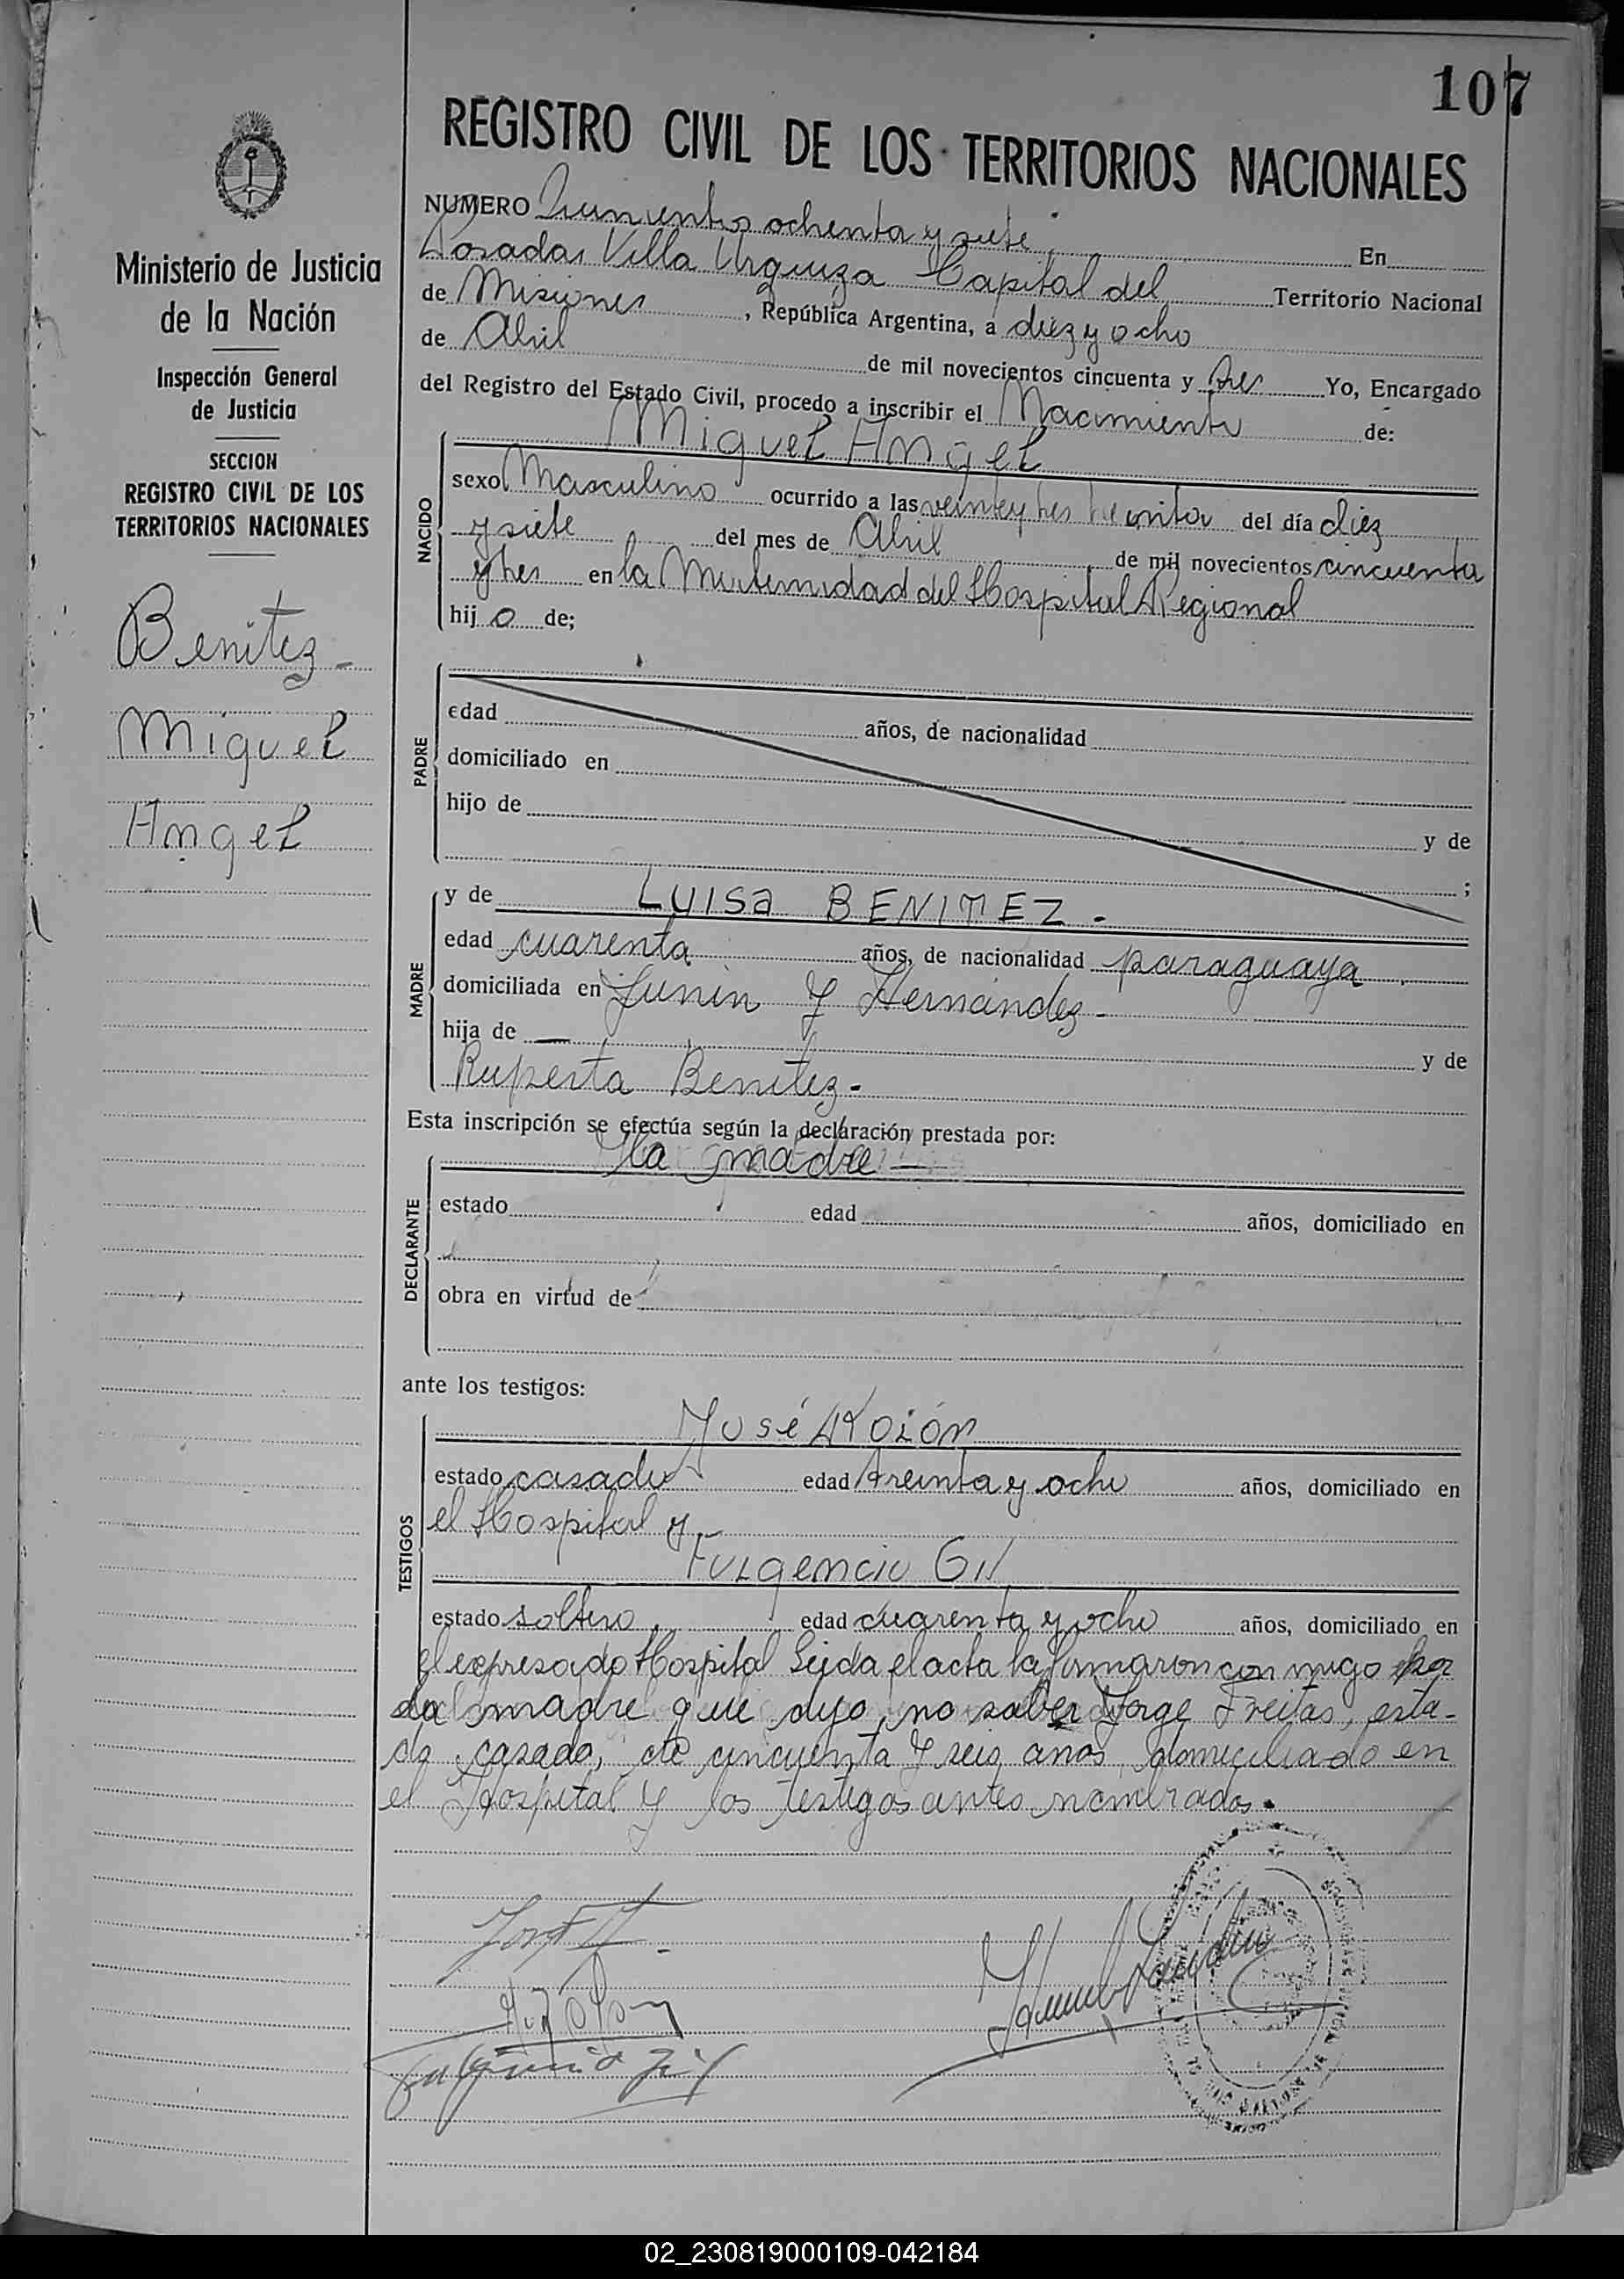 107
REGISTRO CIVIL DE LOS TERRITORIOS NACIONALES
Ministerio de Justicia
de la Nación
Inspección General
de Justicia
SECCION
REGISTRO CIVIL DE LOS
TERRITORIOS NACIONALES
Benitez -
Miguel
Angel
NUMERO Quinientos ochenta y siete. En
Posadas Villa Urquiza Capital del Territorio Nacional
de Misiones, República Argentina, a diez y ocho
de Abril de mil novecientos cincuenta y tres Yo, Encargado
del Registro del Estado Civil, procedo a inscribir el Nacimiento de:
Miguel Angel
NACIDO
sexo Masculino ocurrido a las veinte y tres treinta del día diez
y siete del mes de Abril de mil novecientos cincuenta
y tres en la Maternidad del Hospital Regional
hijo de;
PADRE
edad años, de nacionalidad
domiciliado en
hijo de y de
;
MADRE
y de LUISA BENITEZ -
edad cuarenta años, de nacionalidad paraguaya
domiciliada en Junín y Hernández -
hija de — y de
Ruperta Benitez -
Esta inscripción se efectúa según la declaración prestada por:
DECLARANTE
la madre —
estado edad años, domiciliado en
obra en virtud de
ante los testigos:
TESTIGOS
José Rolón
estado casado edad treinta y ocho años, domiciliado en
el Hospital y
Fulgencio Gil
estado soltero edad cuarenta y ocho años, domiciliado en
el expresado Hospital Leida el acta la firmaron con migo por
la madre que dijo no saber Jorge Freitas, esta-
do casado, de cincuenta y seis años, domiciliado en
el Hospital y los testigos antes nombrados.
Fulgencio Gil
02_230819000109-042184